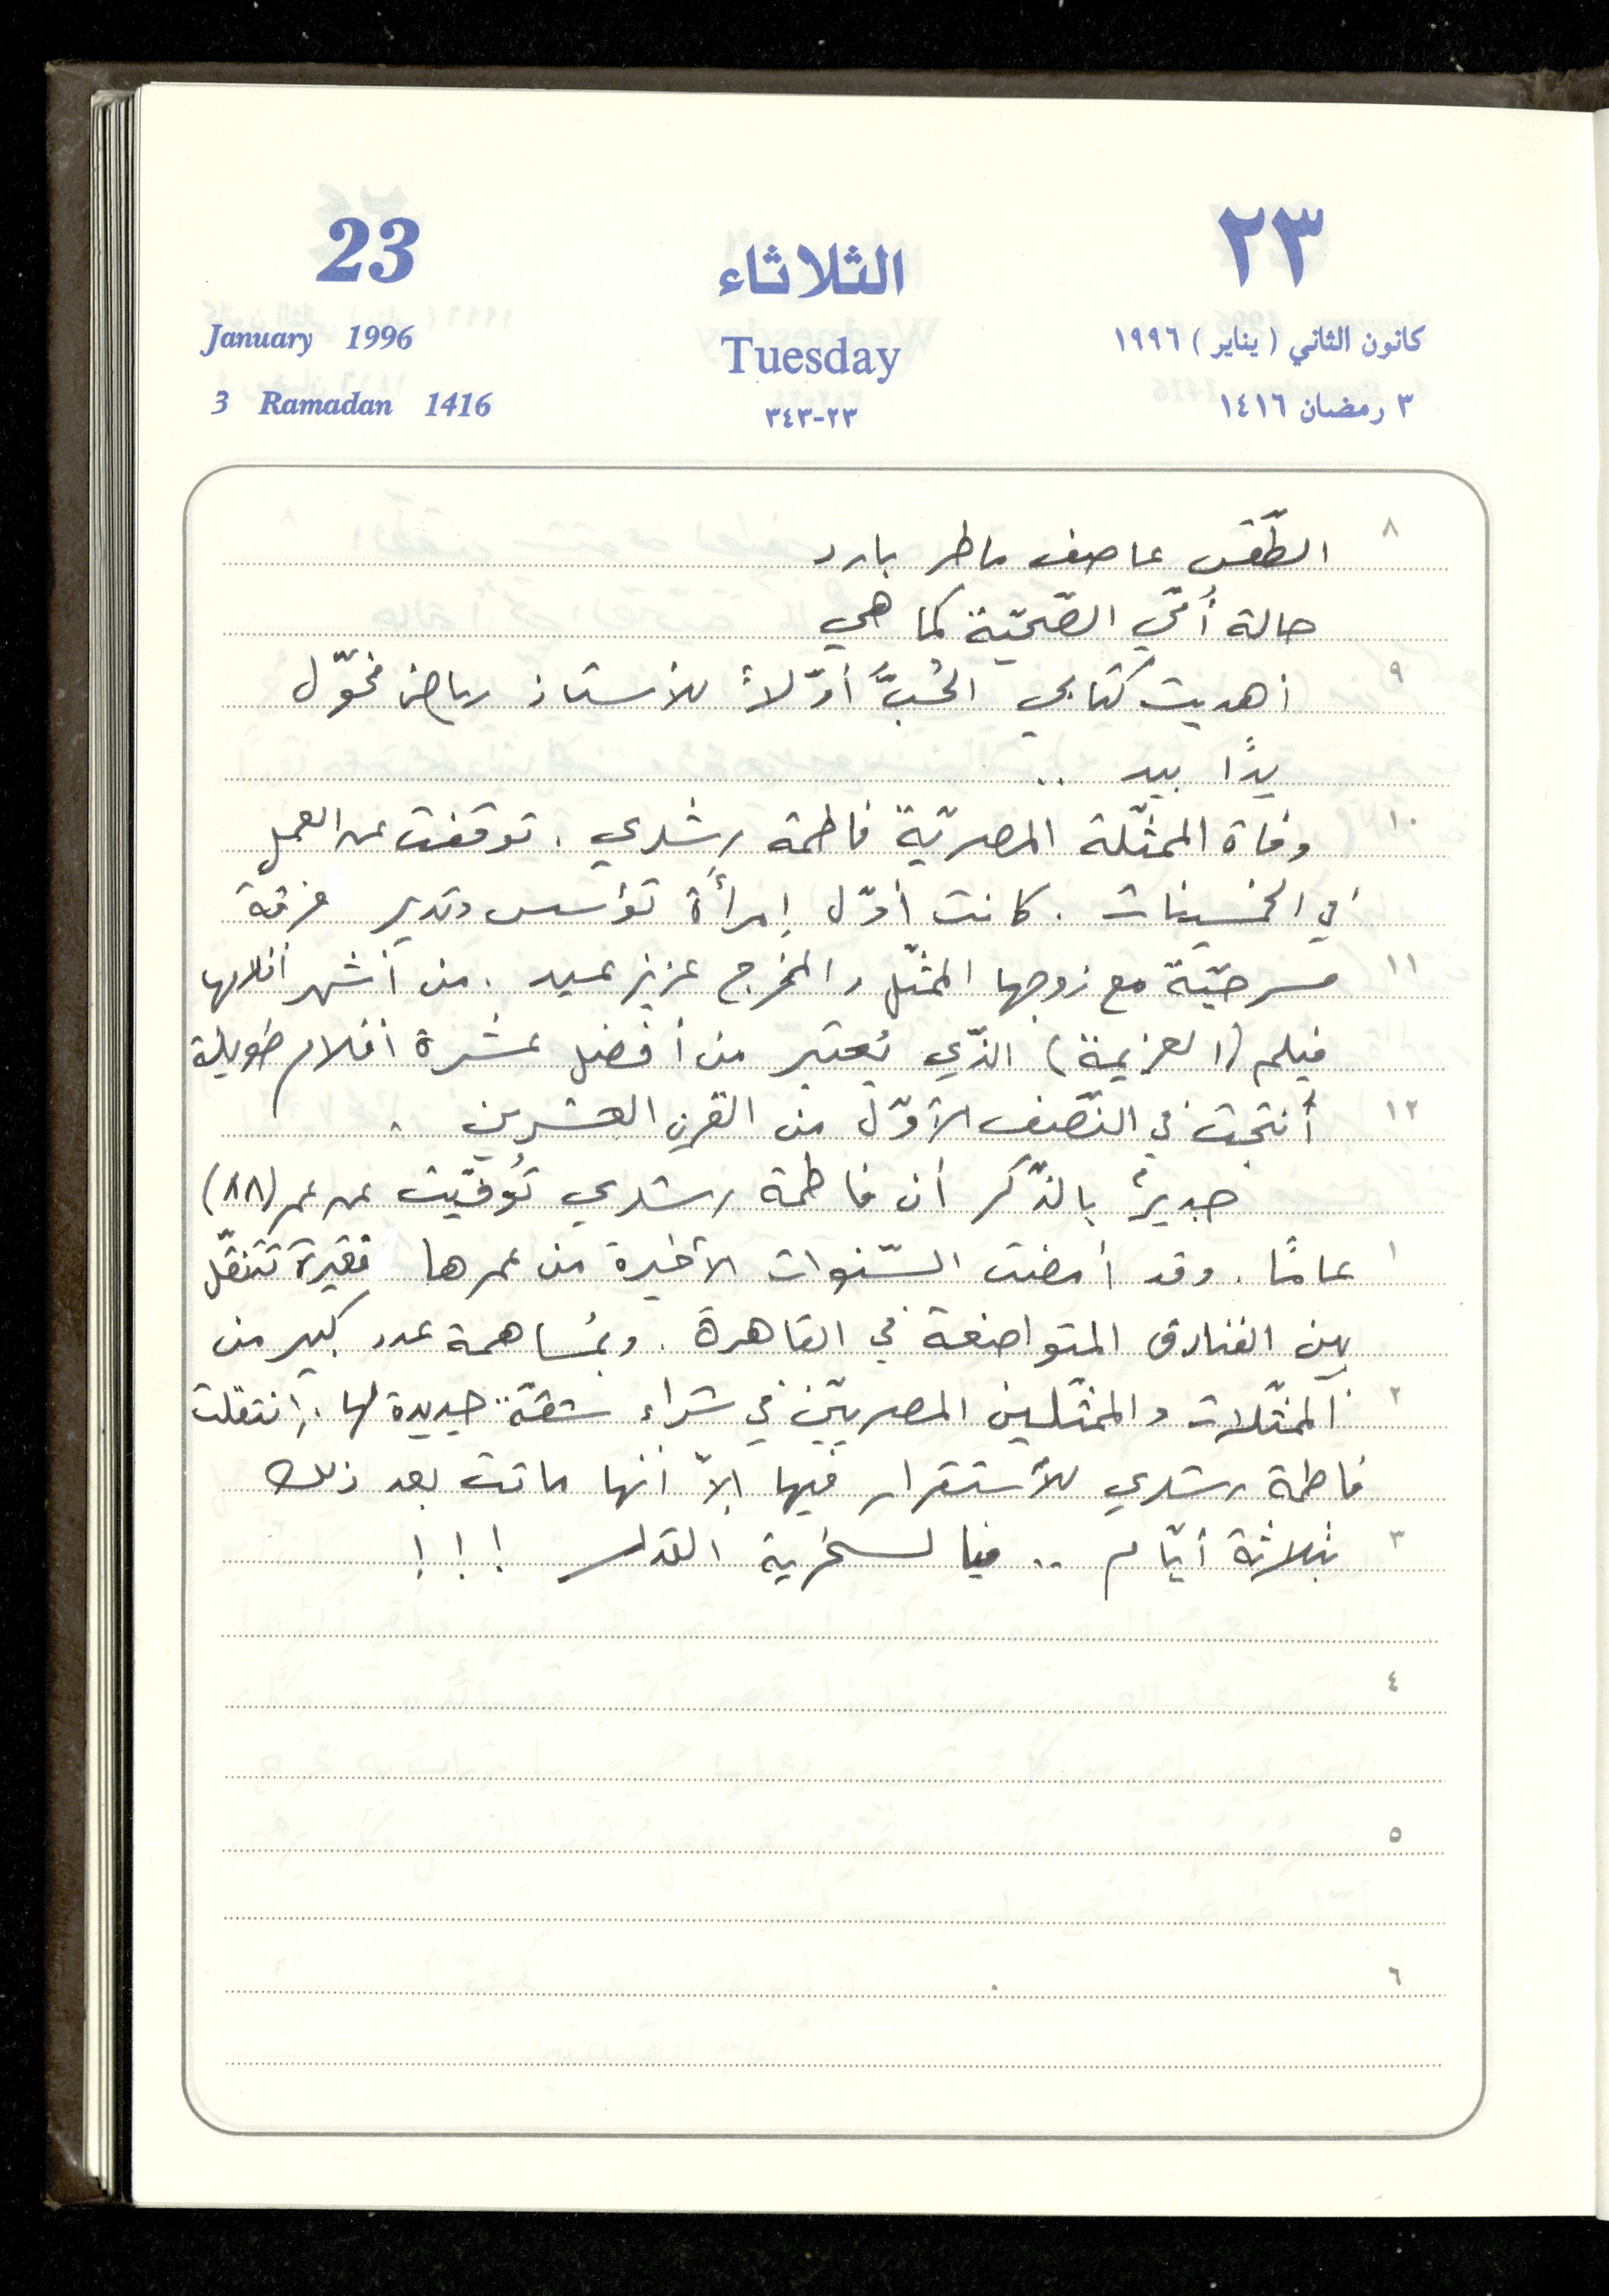 23
الثلاثاء
٢٣
January 1996
Tuesday
كانون الثاني ( يناير ) ١٩٩٦
3 Ramadan 1416
٢٣-٣٤٣
٣ رمضان ١٤١٦
٨
الطّقس عاصف ماطر بارد
حالة أمّي الصّحيّة كما هي
٩
أهديت كتابي الحُبُّ أوّلاً للأستاذ رياض مخوّل
يدًا بيد ..
١٠
وفاة الممثّلة المصريّة فاطمة رشدي . توقفت عن العمل
في الخمسينات . كانت أوّل إمرأة تؤسس وتدير فرقة
١١
مسرحيّة مع زوجها الممثّل والمخرج عزيز عيد . من أشهر أفلامها
فيلم (العزيمة) الذّي يُعتبر من أفضل عشرة أفلام طويلة
١٢
أُنتجت في النّصف الأوّل من القرن العشرين .
جديرٌ بالذّكر أن فاطمة رشدي تُوفيّت عن عمر (٨٨)
١
عامًا . وقد أمضت السّنوات الأخيرة من عمرها فقيرة تتنقّل
بين الفنادق المتواضعة في القاهرة . وبمُساهمة عدد كبير من
٢
الممثّلات والممثّلين المصرييّن في شراء شقّة جديدة لها . إنتقلت
فاطمة رشدي للأستقرار فيها إلاّ أنها ماتت بعد ذلك
٣
بثلاثة أيّام .. فيا لسخرية القدر ! ! !
٤
٥
٦